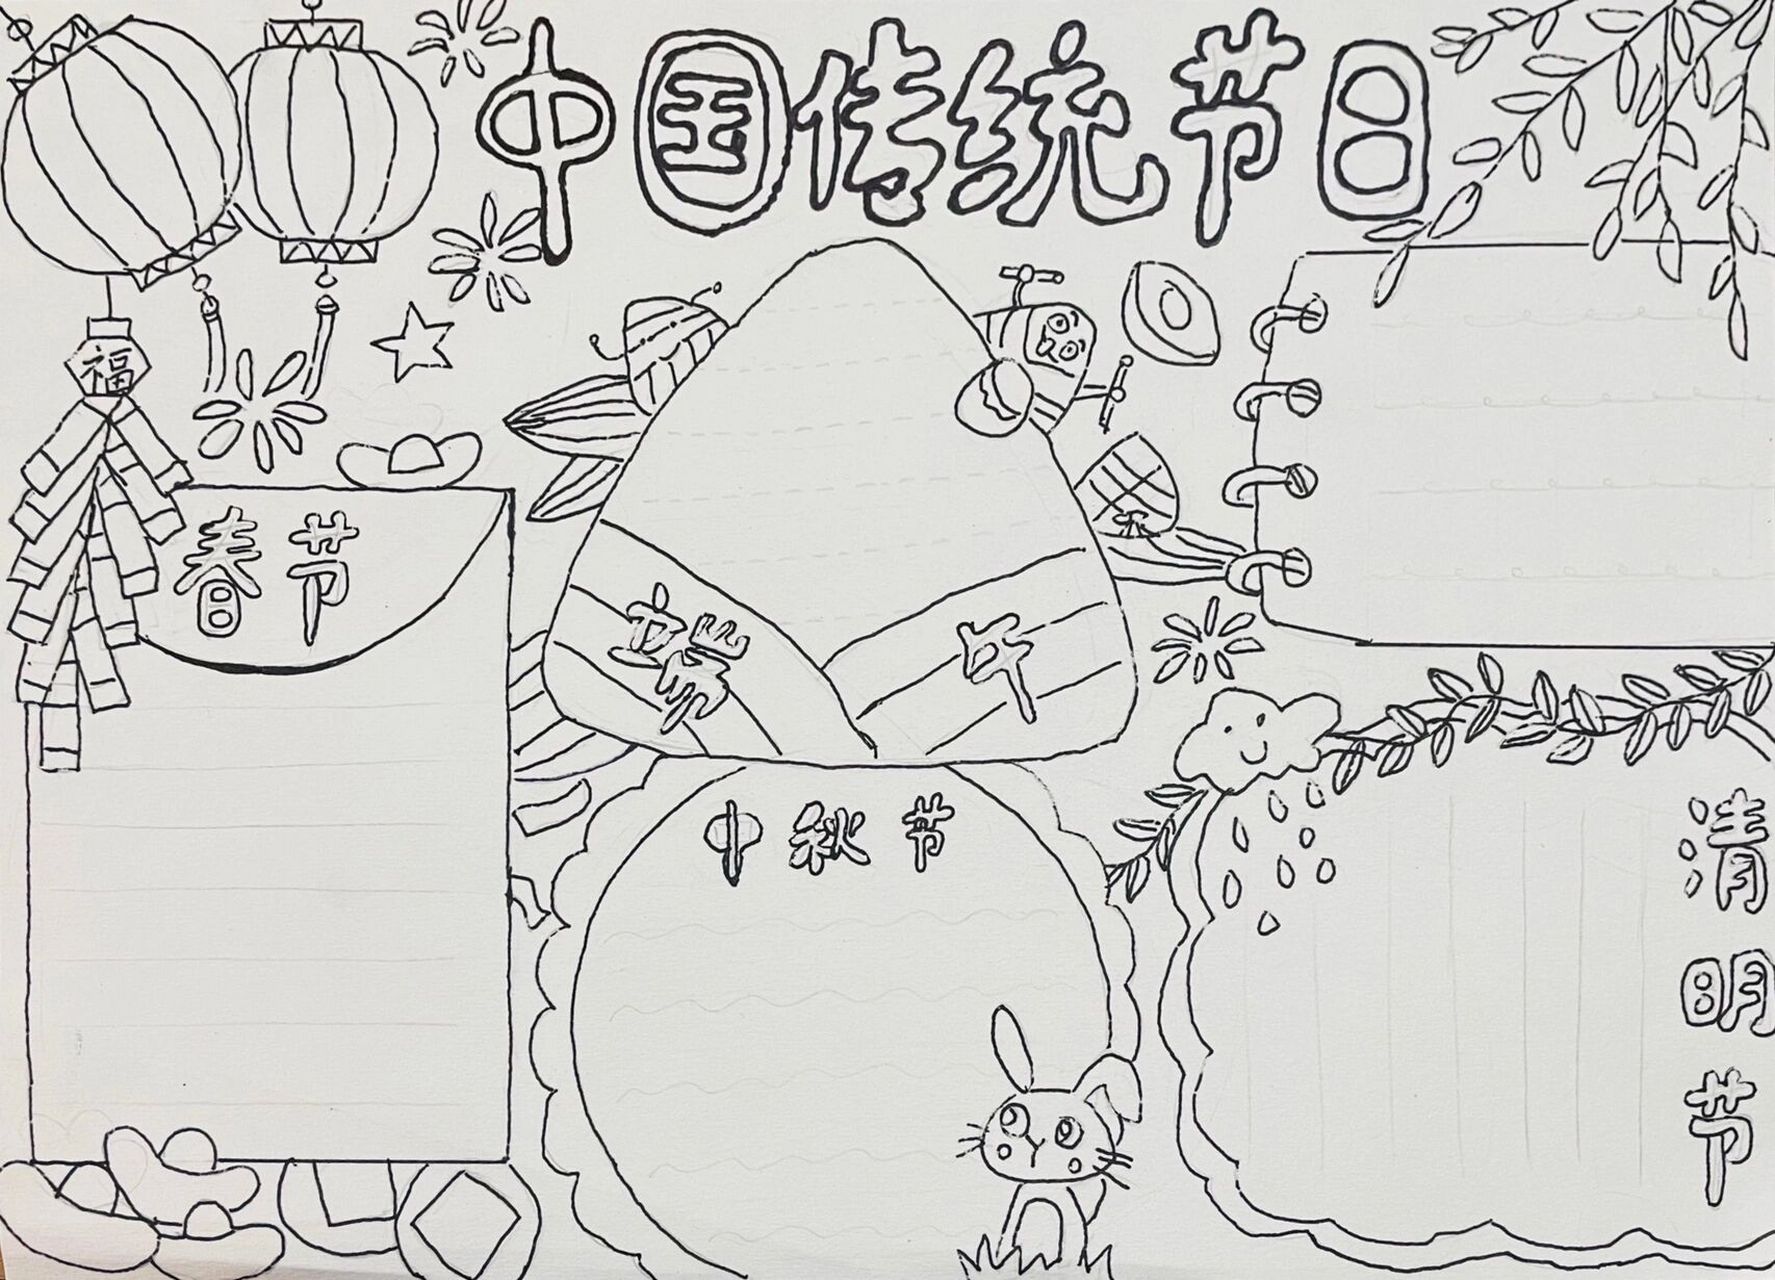 中国传统节日
福
春节
端午
中秋节
清明节